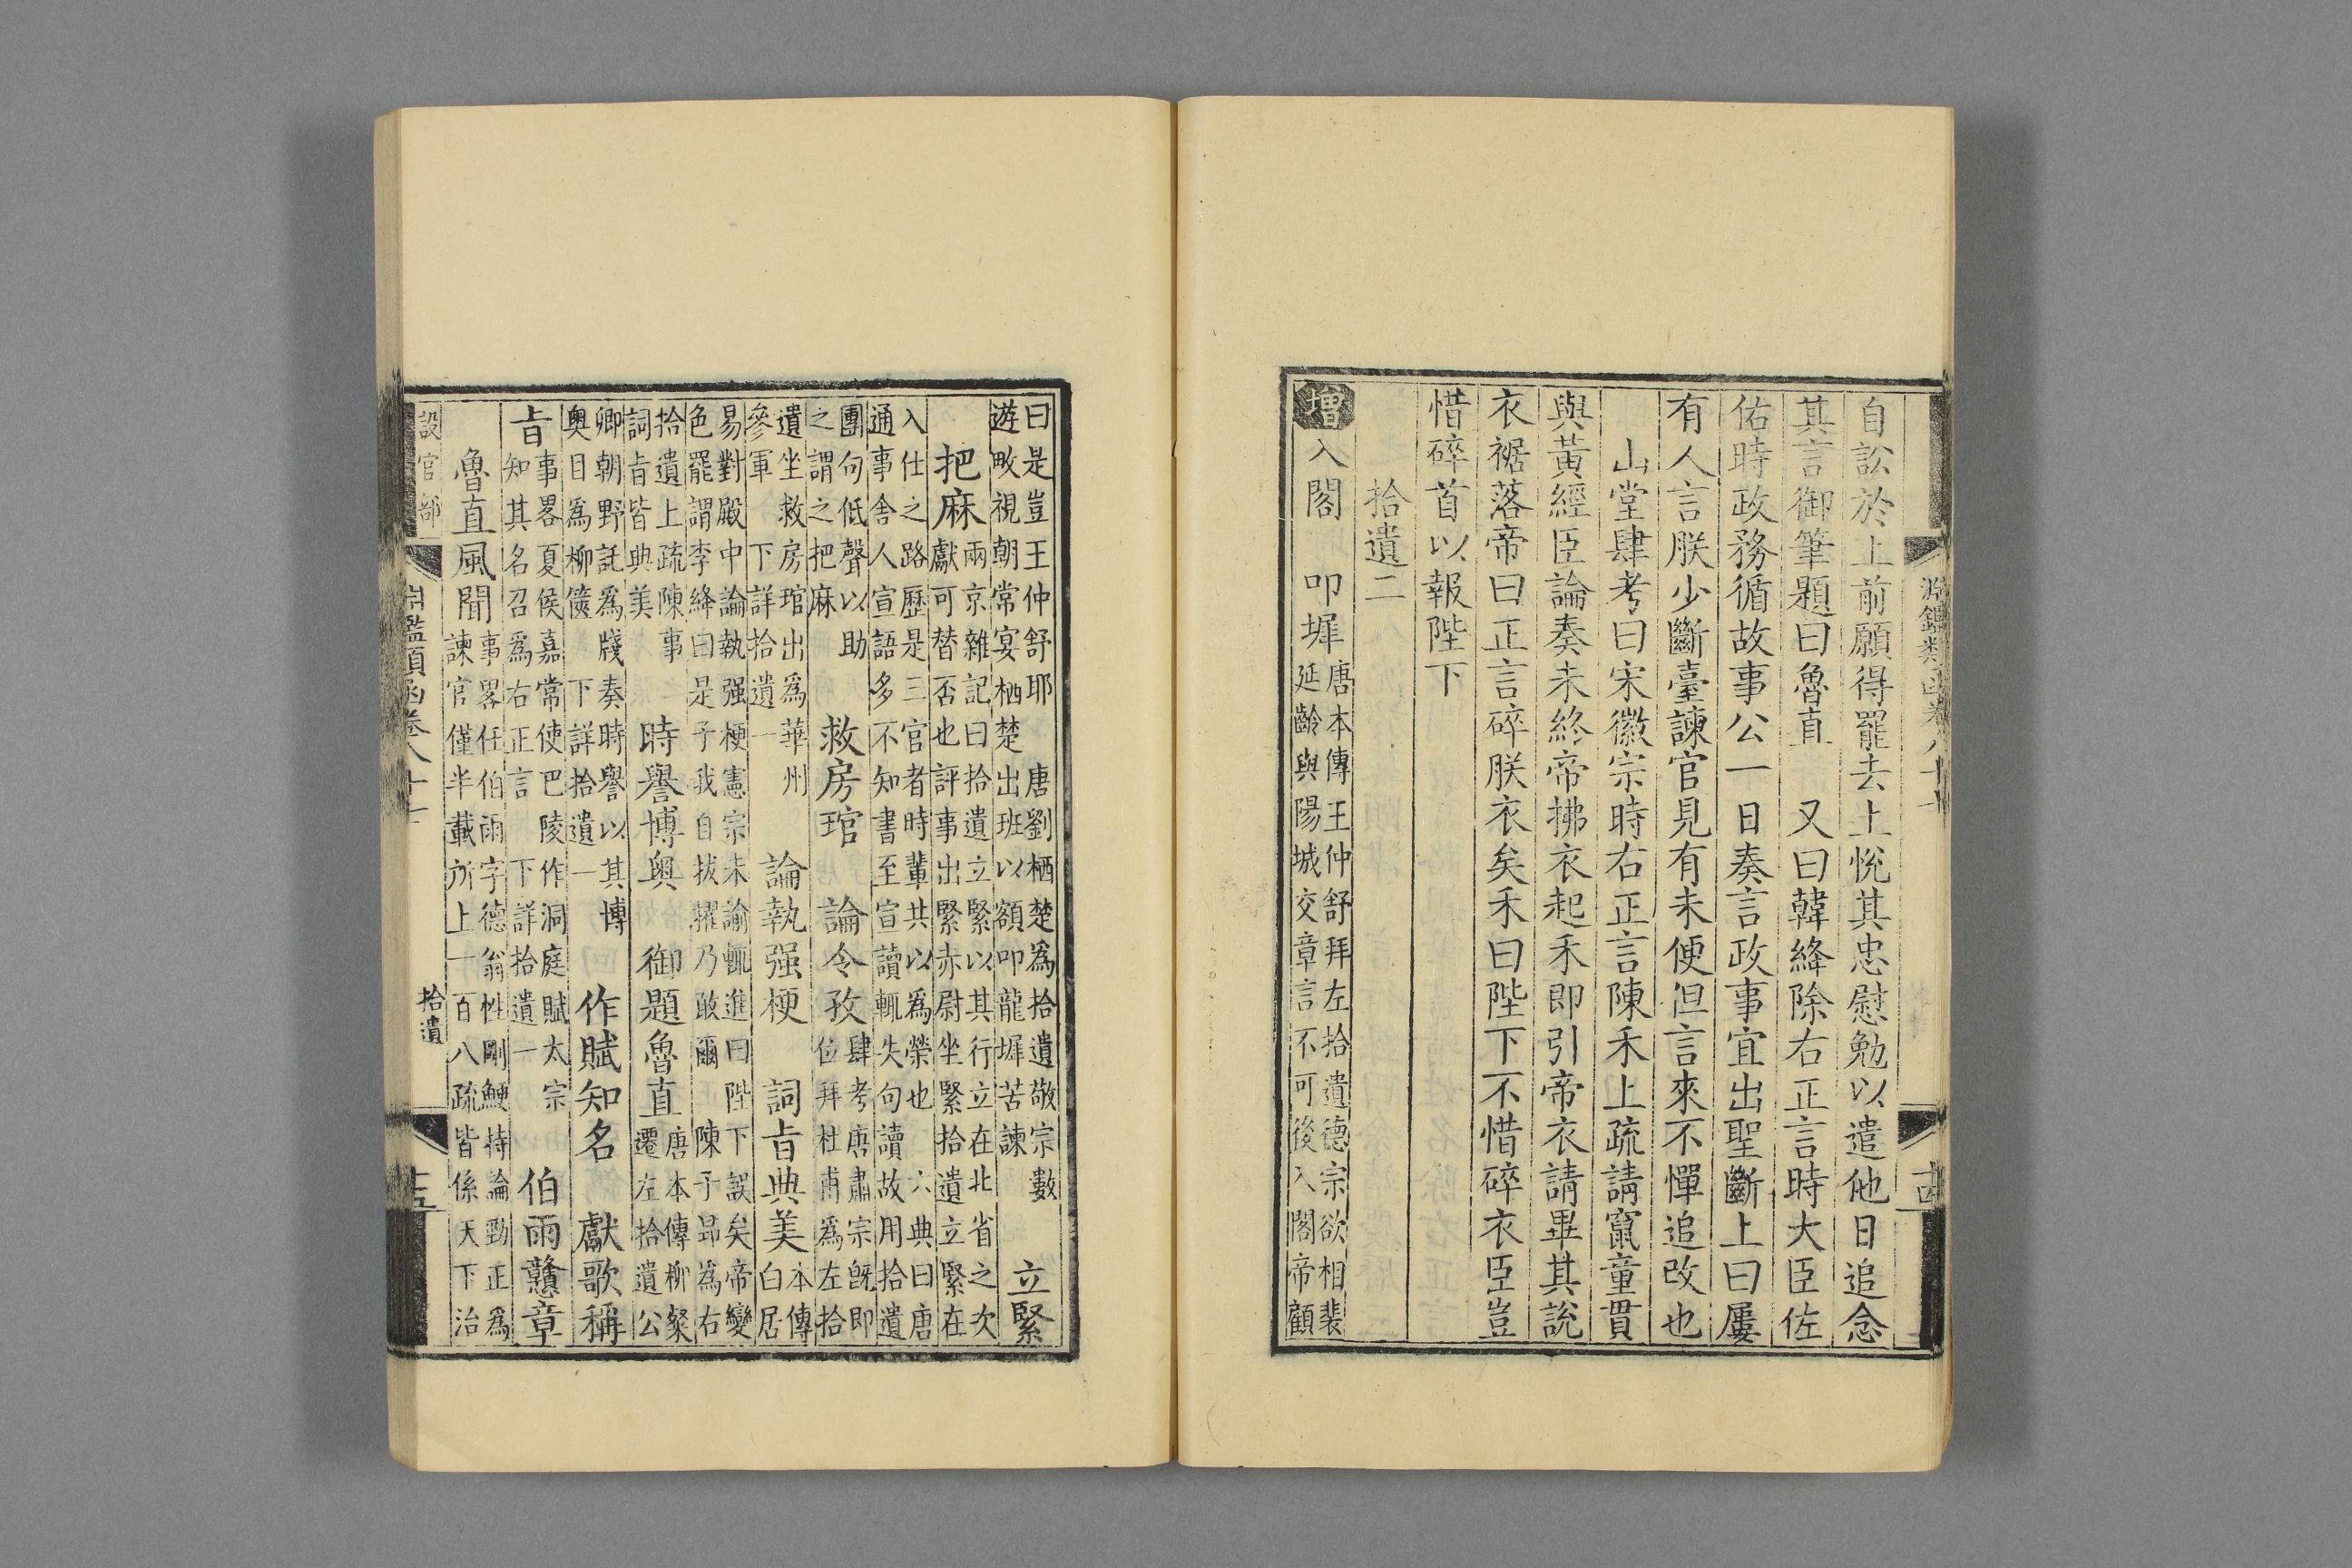 淵鑑類函卷八十七
十四
自訟於上前願得罷去上悅其忠慰勉以遣他日追念
其言御筆題曰魯直　又曰韓絳除右正言時大臣佐
佑時政務循故事公一日奏言政事宜出聖斷上曰屢
有人言朕少斷臺諫官見有未便但言來不憚追改也
山堂肆考曰宋徽宗時右正言陳禾上疏請竄童貫
與黃經臣論奏未終帝拂衣起禾即引帝衣請畢其說
衣裾落帝曰正言碎朕衣矣禾曰陛下不惜碎衣臣豈
惜碎首以報陛下
拾遺二
增入閣　叩墀唐本傳王仲舒拜左拾遺德宗欲相裴
延齡與陽城交章言不可後入閣帝顧
曰是豈王仲舒耶　唐劉栖楚爲拾遺敬宗數
遊畋視朝常宴栖楚出班以額叩龍墀苦諫　立緊
把麻兩京雜記曰拾遺立緊以其行立在北省之次
獻可替否也評事出緊赤尉坐緊拾遺立緊在
入仕之路歷是三官者時輩共以爲榮也　六典曰唐
通事舍人宣語多不知書至宣讀輒失句讀故用拾遺
團句低聲以助
之謂之把麻　救房琯　論令孜肆考唐肅宗旣即
位拜杜甫爲左拾
遺坐救房琯出爲華州
參軍　下詳拾遺一　論執强梗　詞旨典美本傳
白居
易對殿中論執强梗憲宗未諭輒進曰陛下誤矣帝變
色罷謂李絳曰是子我自拔擢乃敢爾　陳子昻爲右
拾遺上疏陳事
詞旨皆典美　時譽博奥　御題魯直唐本傳柳璨
遷左拾遺公
卿朝野託爲牋奏時譽以其博
奧目爲柳篋　下詳拾遺一　作賦知名　獻歌稱
旨事畧夏侯嘉常使巴陵作洞庭賦太宗
知其名召爲右正言　下詳拾遺一　伯雨戇章
魯直風聞事畧任伯雨字德翁性剛鯁持論勁正爲
諫官僅半載所上一百八疏皆係天下治
設官部
淵鑑類函卷八十七
拾遺
十五